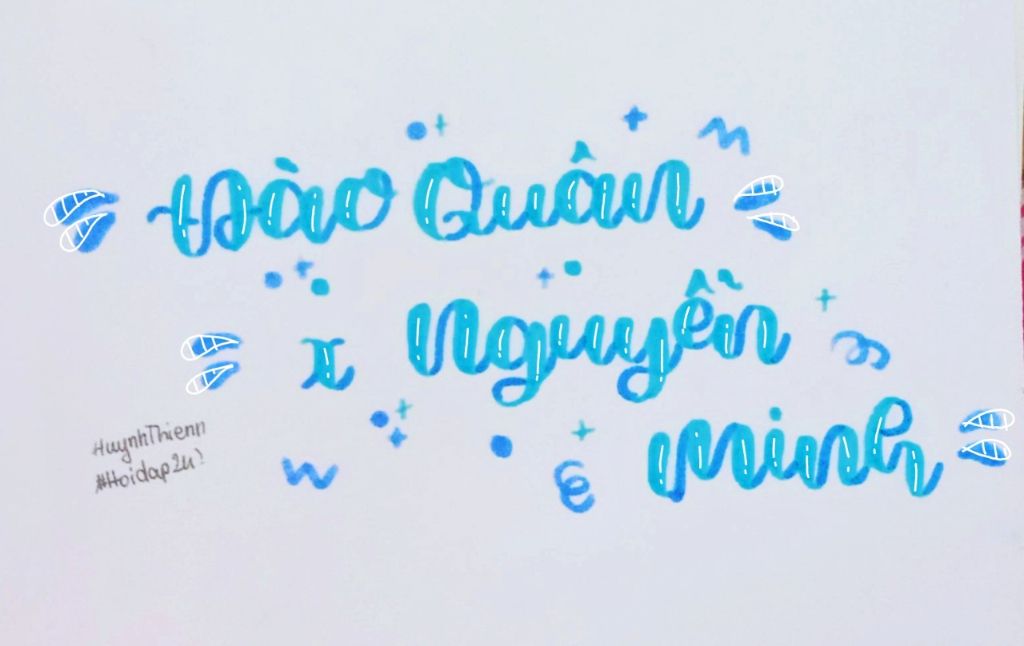 Đào Quân
x Nguyễn
Minh
HuynhThienn
#Hoidap24!